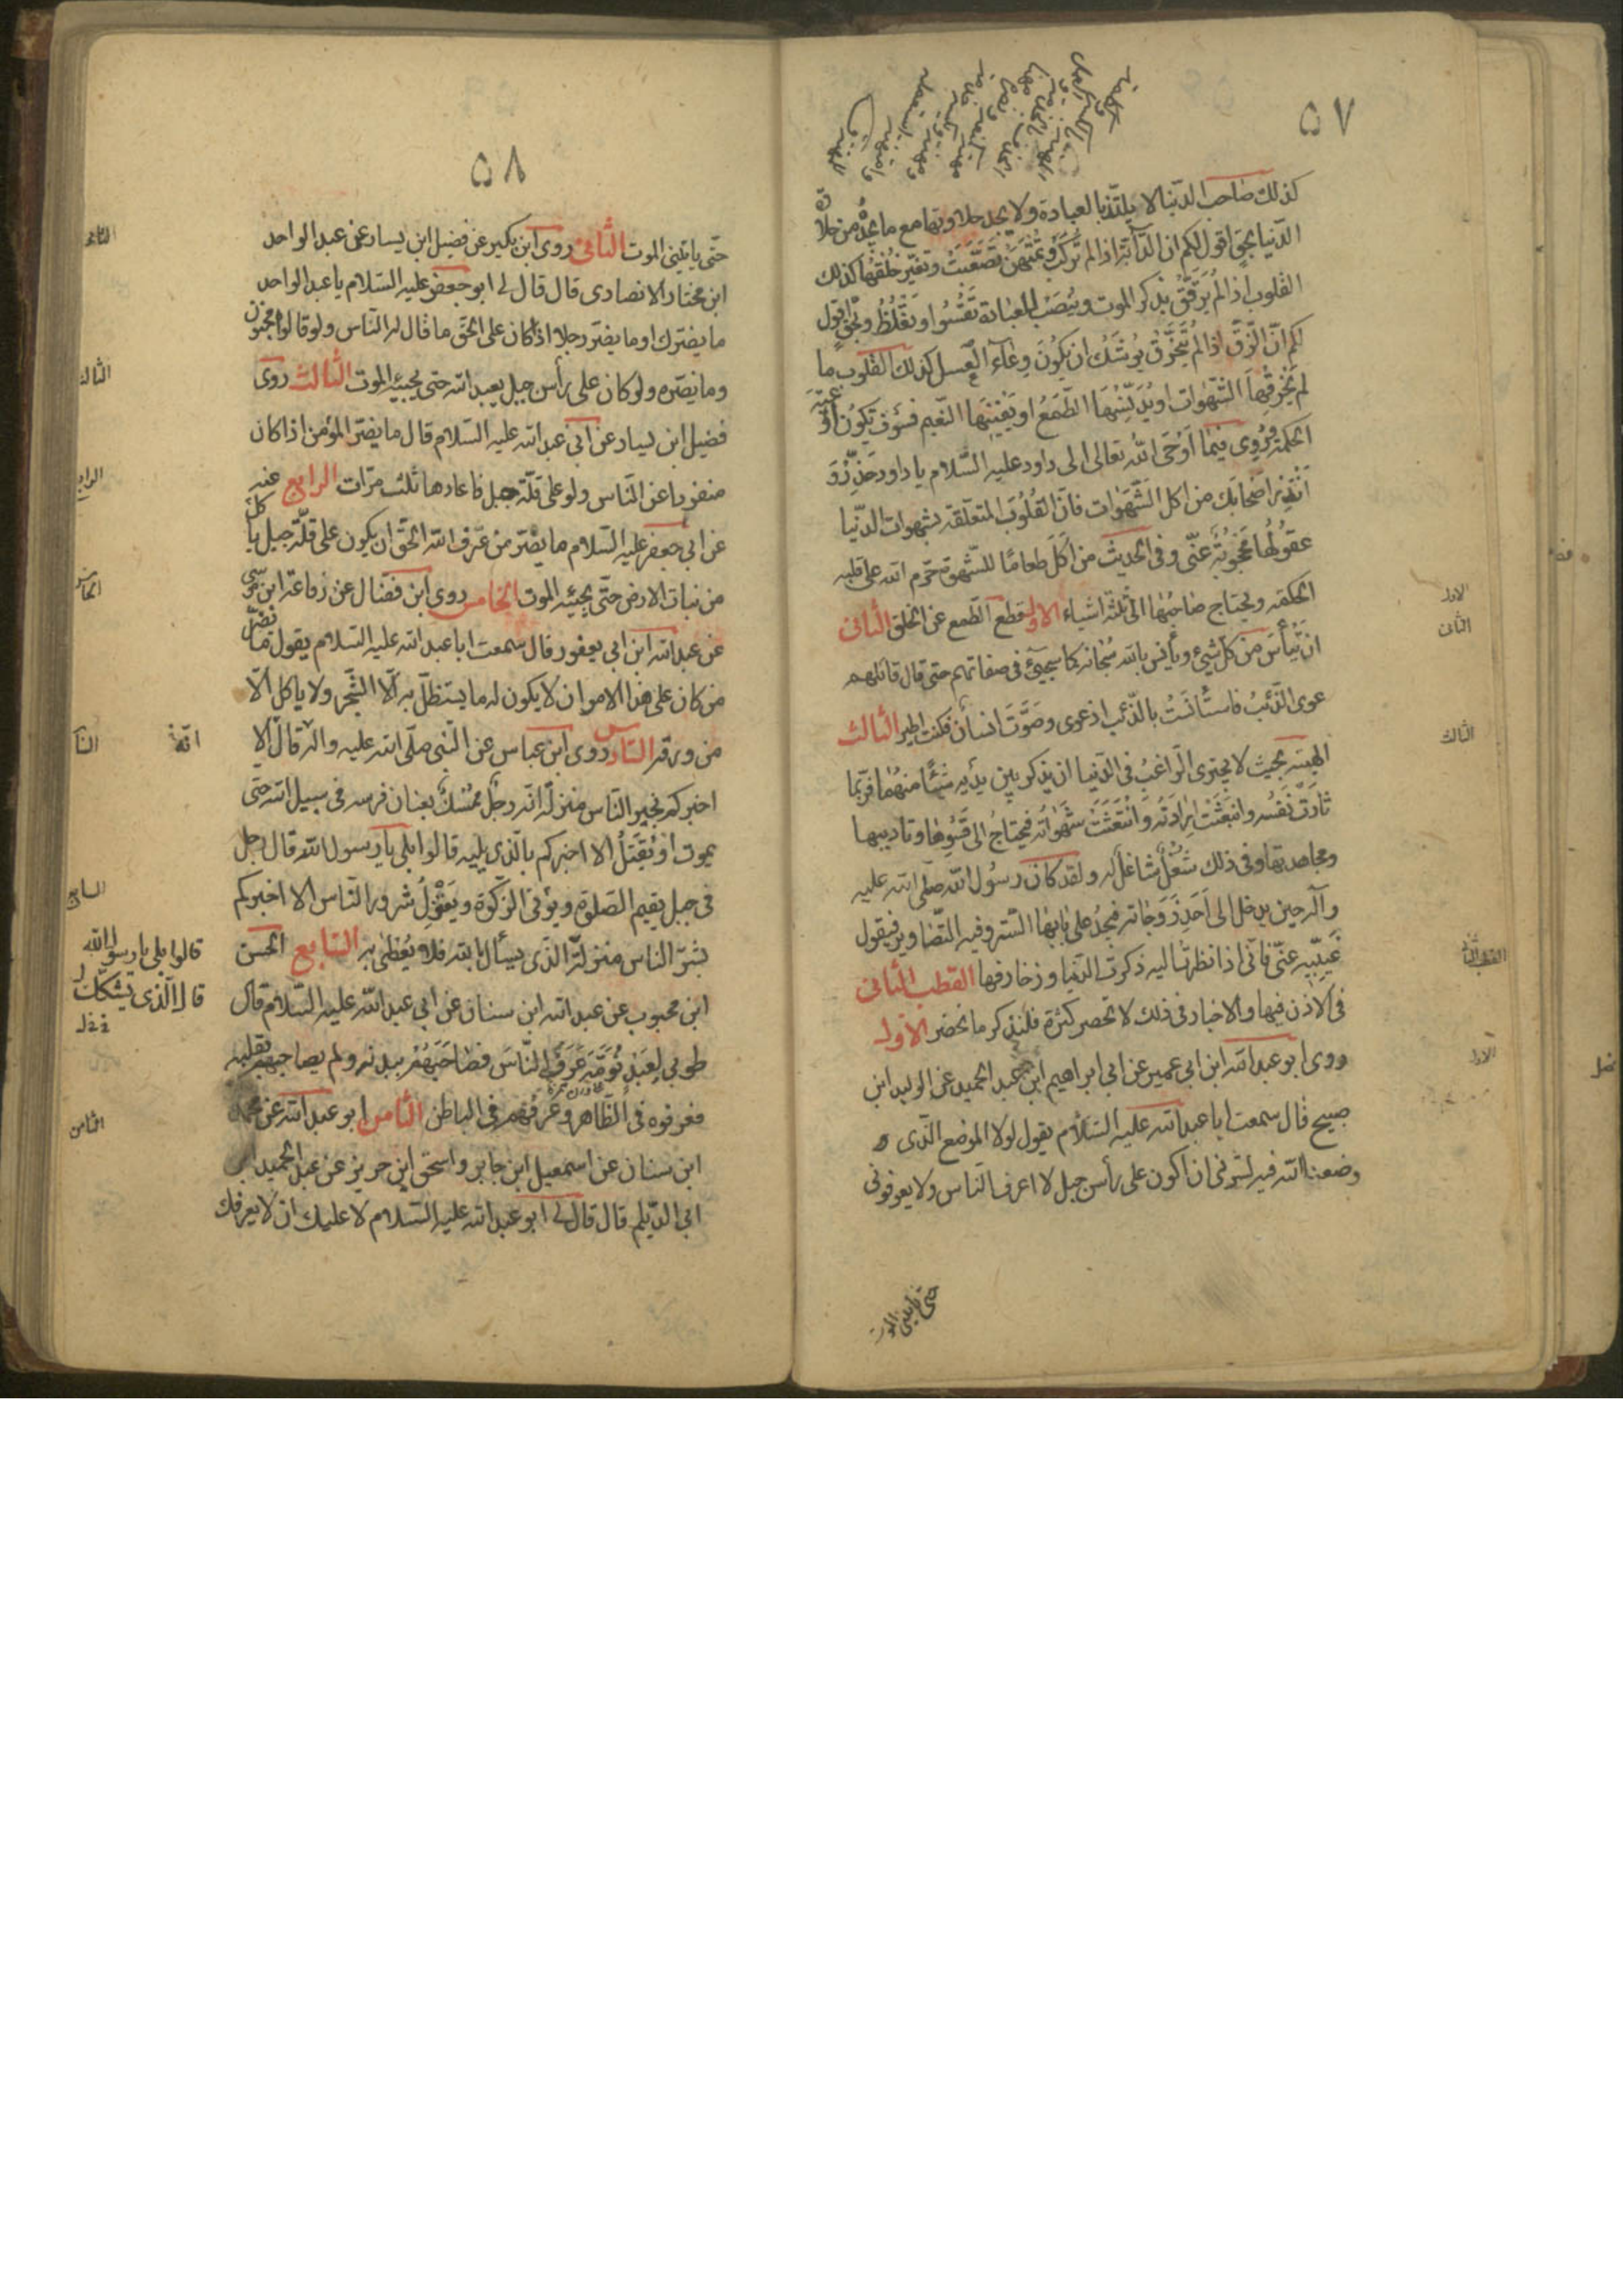 ٥٧
كذلك صاحب الدّنيا لا يلتذّ بالعبادة ولا يجد حلاوتها مع ما يجدُ من حلاوة
الدّنيا بحقٍّ اقول لكم انّ الدّابّة اذا لم تُركَب وتُمْتَهَنُ تَصَعَّبَتْ وتغيّر خُلْقُها كذلك
القلوب اذا لم يُرَقَّقْ بذكر الموت ونُصَبُ العبادة تَقْسُوا وتَغْلُظُ وبحقٍّ اقول
لكم انّ الزّقّ اذا لم يتخرّق يُوشَكُ ان يكُونَ وِعاءَ العسل كذلك القلوب ما
لم تَخْرِقْها الشّهوات او يُدَنِّسْها الطّمعُ او يُقْسِيها النّعيم فسوف تكون اَوْعِيَة
الحكمة ورُوِى فيما اَوْحَى اللّه تعالى الى داود عليه السّلام يا داود حَذِّرْ وَ
اَنْذِر اَصْحابَك من اكل الشّهَوات فانّ القُلُوبَ المتعلّقة بشهوات الدّنيا
عقُولُها مَحْجُوبَةٌ عنّى وفى الحديث من اَكَلَ طعامًا للشّهوة حرّم الله على قلبه
الحكمة ويحتاج صاحبُها الى ثلثة اشياء الاول قطع الطّمع عن الخلق الثانى
ان يَيْأَسَ من كل شىء ويأنِس بالله سُبحانه كما سيجىء فى صفاتهم حتى قال قائلهم
عوى الذّئبُ فاستأنستُ بالذّئب اذ عوى وصَوَّتَ انسان فكنت اطير الثالث
الهيبة بحيث لا يجترى الرّاغبُ فى الدّنيا ان يذكر بين يديه شيئًا منها فربّما
ثارَتْ نَفْسُه وانبعَثَتْ اِرادَتُه وَانْتَعَشَتْ شَهْوَاتُه فيحتاجُ الى قَسْوِها وتاديبها
ومجاهدتها وفى ذلك شُغْلٌ شاغلٌ له ولقد كان رسُول اللّه صلّى الله عليه
وآله حين يدخل الى اَحَدِ زَوجاته فيجدُ على بابها السّتر وفيه التّصاوير فيقول
غَيِّبيه عنّى فانّى اذا نظرتُ اليه ذكرت الدّنيا وزخارفها القطب الثّانى
فى الاذن فيها والاخبار فى ذلك لا تحصر كثرة فلنذكر ما يحضر الاول
روى ابو عبد الله ابن ابى عمير عن ابى ابراهيم ابن عبد الحميد عن الوليد ابن
صبيح قال سمعت ابا عبد الله عليه السّلام يقول لولا الموضع الّذى
وضعنا الله فيه لسرّنى ان اكون على رأس جبل لا اعرف الناس ولا يعرفونى
حتى ياتينى الموت
الاول
الثانى
الثالث
القطب الثانى
الاول
٥٨
حتّى ياتينى الموت الثانى روى ابن بكير عن فضيل ابن يسار عن عبد الواحد
ابن مختار الانصارى قال قال لى ابو جعفر عليه السّلام يا عبد الواحد
ما يضترك او ما يضتر رجلا اذا كان على الحقّ ما قال له النّاس ولو قالوا مجنون
وما يضرّه ولو كان على رأس جبل يعبد الله حتى يجيئه الموت الثالث روى
فضيل ابن يسار عن ابى عبد الله عليه السّلام قال ما يضرّ المؤمن اذا كان
منفردا عن النّاس ولو على قلّة جبل فاعادها ثلث مرّات الرابع عنه
عن ابى جعفر عليه السّلام ما يضرّ من عرّف الله الحقّ ان يكون على قلّة جبل ياكل
من نبات الارض حتّى يجيئه الموت الخامس روى ابن فضّال عن رفاعة ابن موسى
عن عبد الله ابن ابى يعفور قال سمعت ابا عبد الله عليه السلام يقول ما يضرّ
من كان على هذا الامر ان لا يكون له ما يستظلّ به الّا الشّجر ولا ياكل الّا
من ورقه السّادس روى ابن عباس عن النّبى صلّى الله عليه واله انّه قال الا
اخبركم بخير النّاس منزلة انّه رجلٌ مُمْسِكٌ بعنان فرسه فى سبيل الله حتى
يموت او يُقْتَلُ الا اخبركم بالّذى يليه قالوا بلى يا رسول الله قال رجل
فى جبل يقيم الصّلوة ويؤتى الزّكوة ويَعْتَزِلُ شرور النّاس الا اخبركم
بشرّ الناس منزلة الّذى يسأل بالله فلا يُعْطى به السّابع الحسن
ابن محبوب عن عبد الله ابن سنان عن ابى عبد الله عليه السّلام قال
طوبى لِعَبْدٍ نُوَمَةٍ عَرَفَ النّاسَ فصاحَبَهُمْ ببدنه ولم يصاحبهم بقلبه
فعرفوه فى الظّاهر وعرفهم فى الباطن الثّامن ابو عبد الله عن محمد
ابن سنان عن اسمعيل ابن جابر واسحق ابن جرير عن عبد الحميد ابن
ابى الدّيلم قال قال لى ابو عبد الله عليه السّلام لا عليك ان لا يعرفك
الثانى
الثالث
الرابع
الخامس
السابع
قالوا بلى يا رسول الله
قال الّذى
الثامن